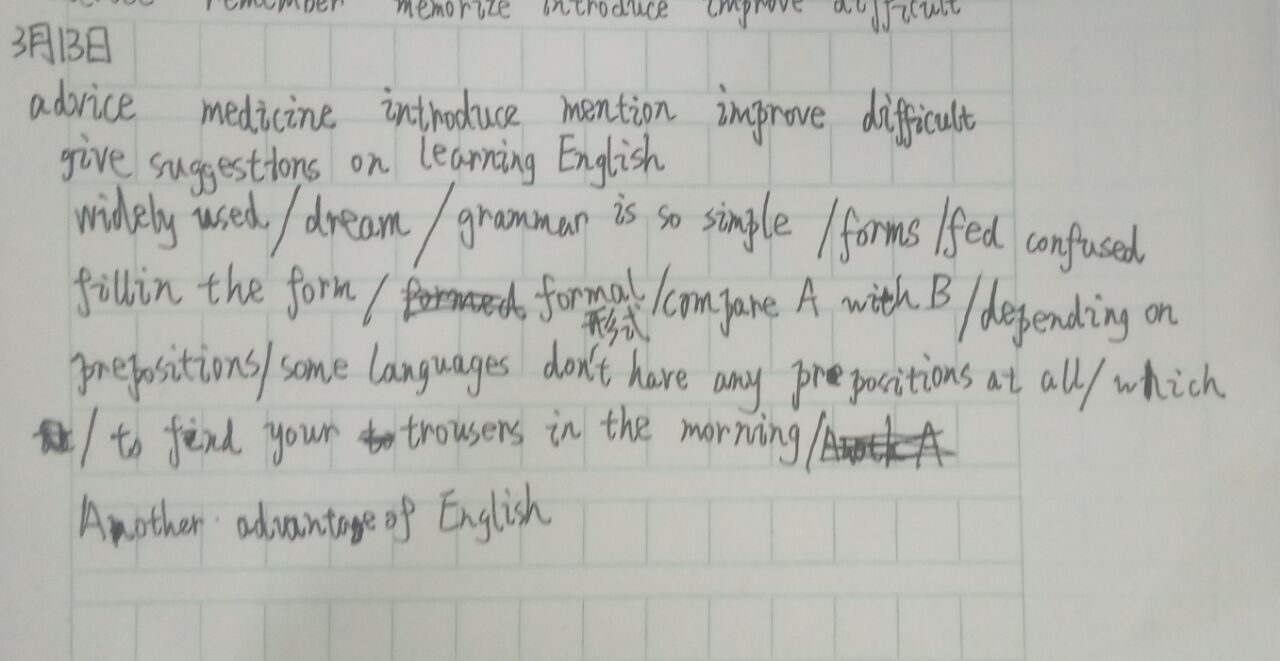 remember memorize introduce improve difficult
3月13日
advice medicine introduce mention improve difficult
give suggestions on learning English
widely used/dream/grammar is so simple/forms/fed confused
fillin the form/formal/compare A with B/depending on
形式
prepositions/some languages don't have any prepositions at all/which
/to find your trousers in the morning/
Another advantage of English